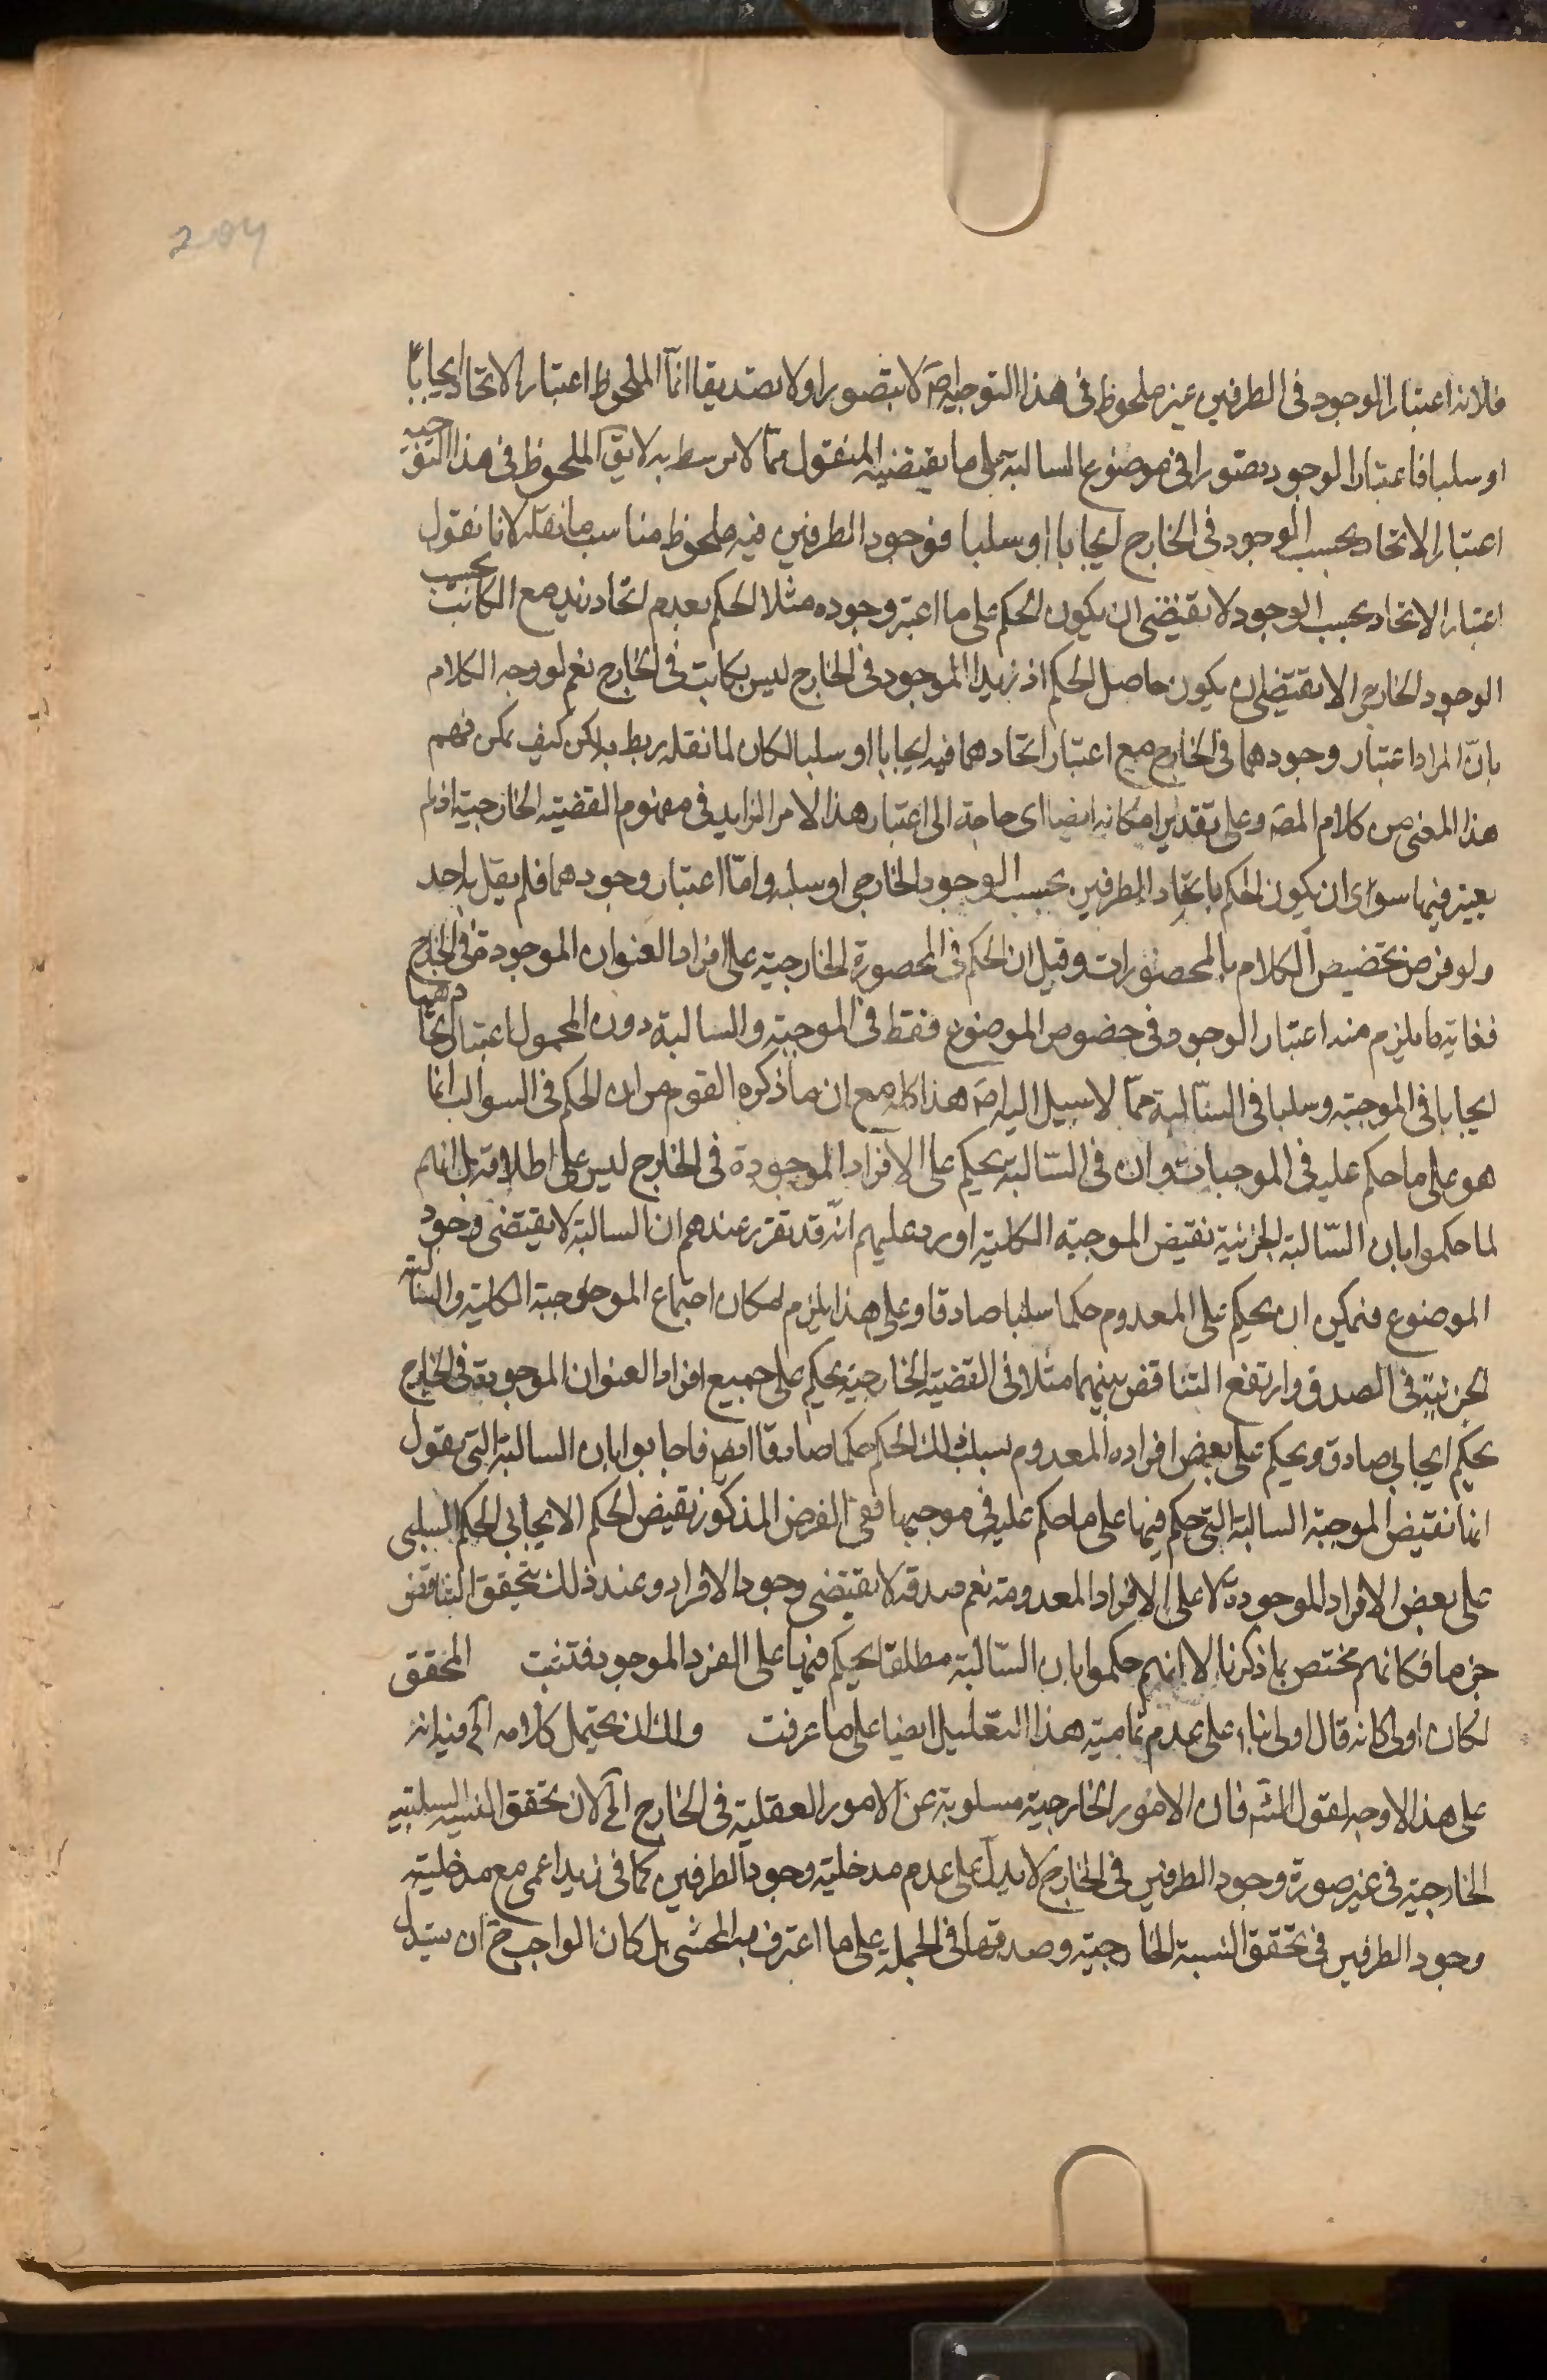 204
فلانه اعتبار الوجود فى الطرفين غير ملحوظ فى هذا التوجيه اصَ لا بتصورا ولا تصديقا انّما الملحوظ اعتبار الاتحاد ايجابًا
او سلبا فاعتبار الوجود تصورا فى موضوع السالبة على ما يقتضيه المنقول ممّا لا يرسط به لا يقَ الملحوظ فى هذا التوجيه
اعتبار الاتحاد بحسب الوجود فى الخارج ايجابا او سلبا فوجود الطرفين فيه ملحوظ مناسب ما نقله لانا نقول
اعتبار الاتحاد بحسب الوجود لا يقتضى ان يكون الحكم على ما اعتبر وجوده مثلا الحكم بعدم اتحاد زيد مع الكاتب بحسب
الوجود الخارجى لا يقتضى ان يكون حاصل الحكم اذ زيدا الموجود فى الخارج ليس بكاتب فى الخارج نعم لو وجه الكلام
بانّ المراد اعتبار وجودهما فى الخارج مع اعتبار اتحادهما فيه ايجابا او سلبا لكان لما نقله ربط به لكن كيف يمكن فهم
هذا المعنى من كلام المصَ وعلى تقدير امكانه ايضا اى حاجة الى اعتبار هذا الامر الزايد فى مفهوم القضية الخارجية اذ لم
يعتبر فيها سوى ان يكون الحكم باتحاد الطرفين بحسب الوجود الخارجى او سلبه وامّا اعتبار وجودهما فلم يقل به احد
ولو فرض تخصيص الكلام بالمحصورات وقيل ان الحكم فى المحصورة الخارجية على افراد العنوان الموجودة فى الخارج
فغاية ما يلزم منه اعتبار الوجود فى خصوص الموضوع فقط فى الموجبة والسالبة دون المحمول اعتبار اتحادهما
ايجابا فى الموجبة وسلبا فى السّالبة ممّا لا سبيل اليه اصَ هذا كله مع ان ما ذكره القوم من ان الحكم فى السوالب انما
هو على ما حكم عليه فى الموجبات وان فى السّالبة يحكم على الافراد الموجودة فى الخارج ليس على اطلاقه بل انهم
لما حكموا بان السّالبة الجزئية نقيض الموجبة الكلية اورد عليهم انّه قد تقرر عندهم ان السالبة لا يقتضى وجود
الموضوع فيمكن ان يحكم على المعدوم حكما سلبا صادقا وعلى هذا يلزم امكان اجتماع الموحوجبة الكلية والسالبة
الجزئية فى الصدق وارتفع التناقض بينهما مثلا فى القضية الخارجية يحكم على جميع افراد العنوان الموجودة فى الخارج
بحكم ايجابى صادق ويحكم على بعض افراده المعدوم بسلب ذلك الحكم حكما صادقا ايضا فاجابوا بان السالبة التى نقول
انها نقيض الموجبة السالبة التى حكم فيها على ما حكم عليه فى موجبها ففى الفرض المذكور نقيض الحكم الايجابى الحكم السلبى
على بعض الافراد الموجودة لا على الافراد المعدومة نعم صدقه لا يقتضى وجود الافراد وعند ذلك يتحقق التناقض
جزما فكانهم مختص بما ذكرنا لا انهم حكموا بان السّالبة مطلقا يحكم فيها على الفرد الموجود فتثبت المحقق
لكان اولى كانه قال اولى بناء على عدم تمامية هذا التعليل ايضا على ما عرفت ولك ان يحتمل كلامه الَخ فيه انه
على هذا لا وجه لقول الشَم فان الامور الخارجية مسلوبة عن الامور العقلية فى الخارج الَخ لان تحقق النسبة السلبية
الخارجية فى غير صورة وجود الطرفين فى الخارج لا يدلّ على عدم مدخلية وجود الطرفين كما فى زيد اعمى مع مدخلية
وجود الطرفين فى تحقق النسبة الخارجية وصدقها فى الجملة على ما اعترف به المحشى بل كان الواجب حَ ان يستدل